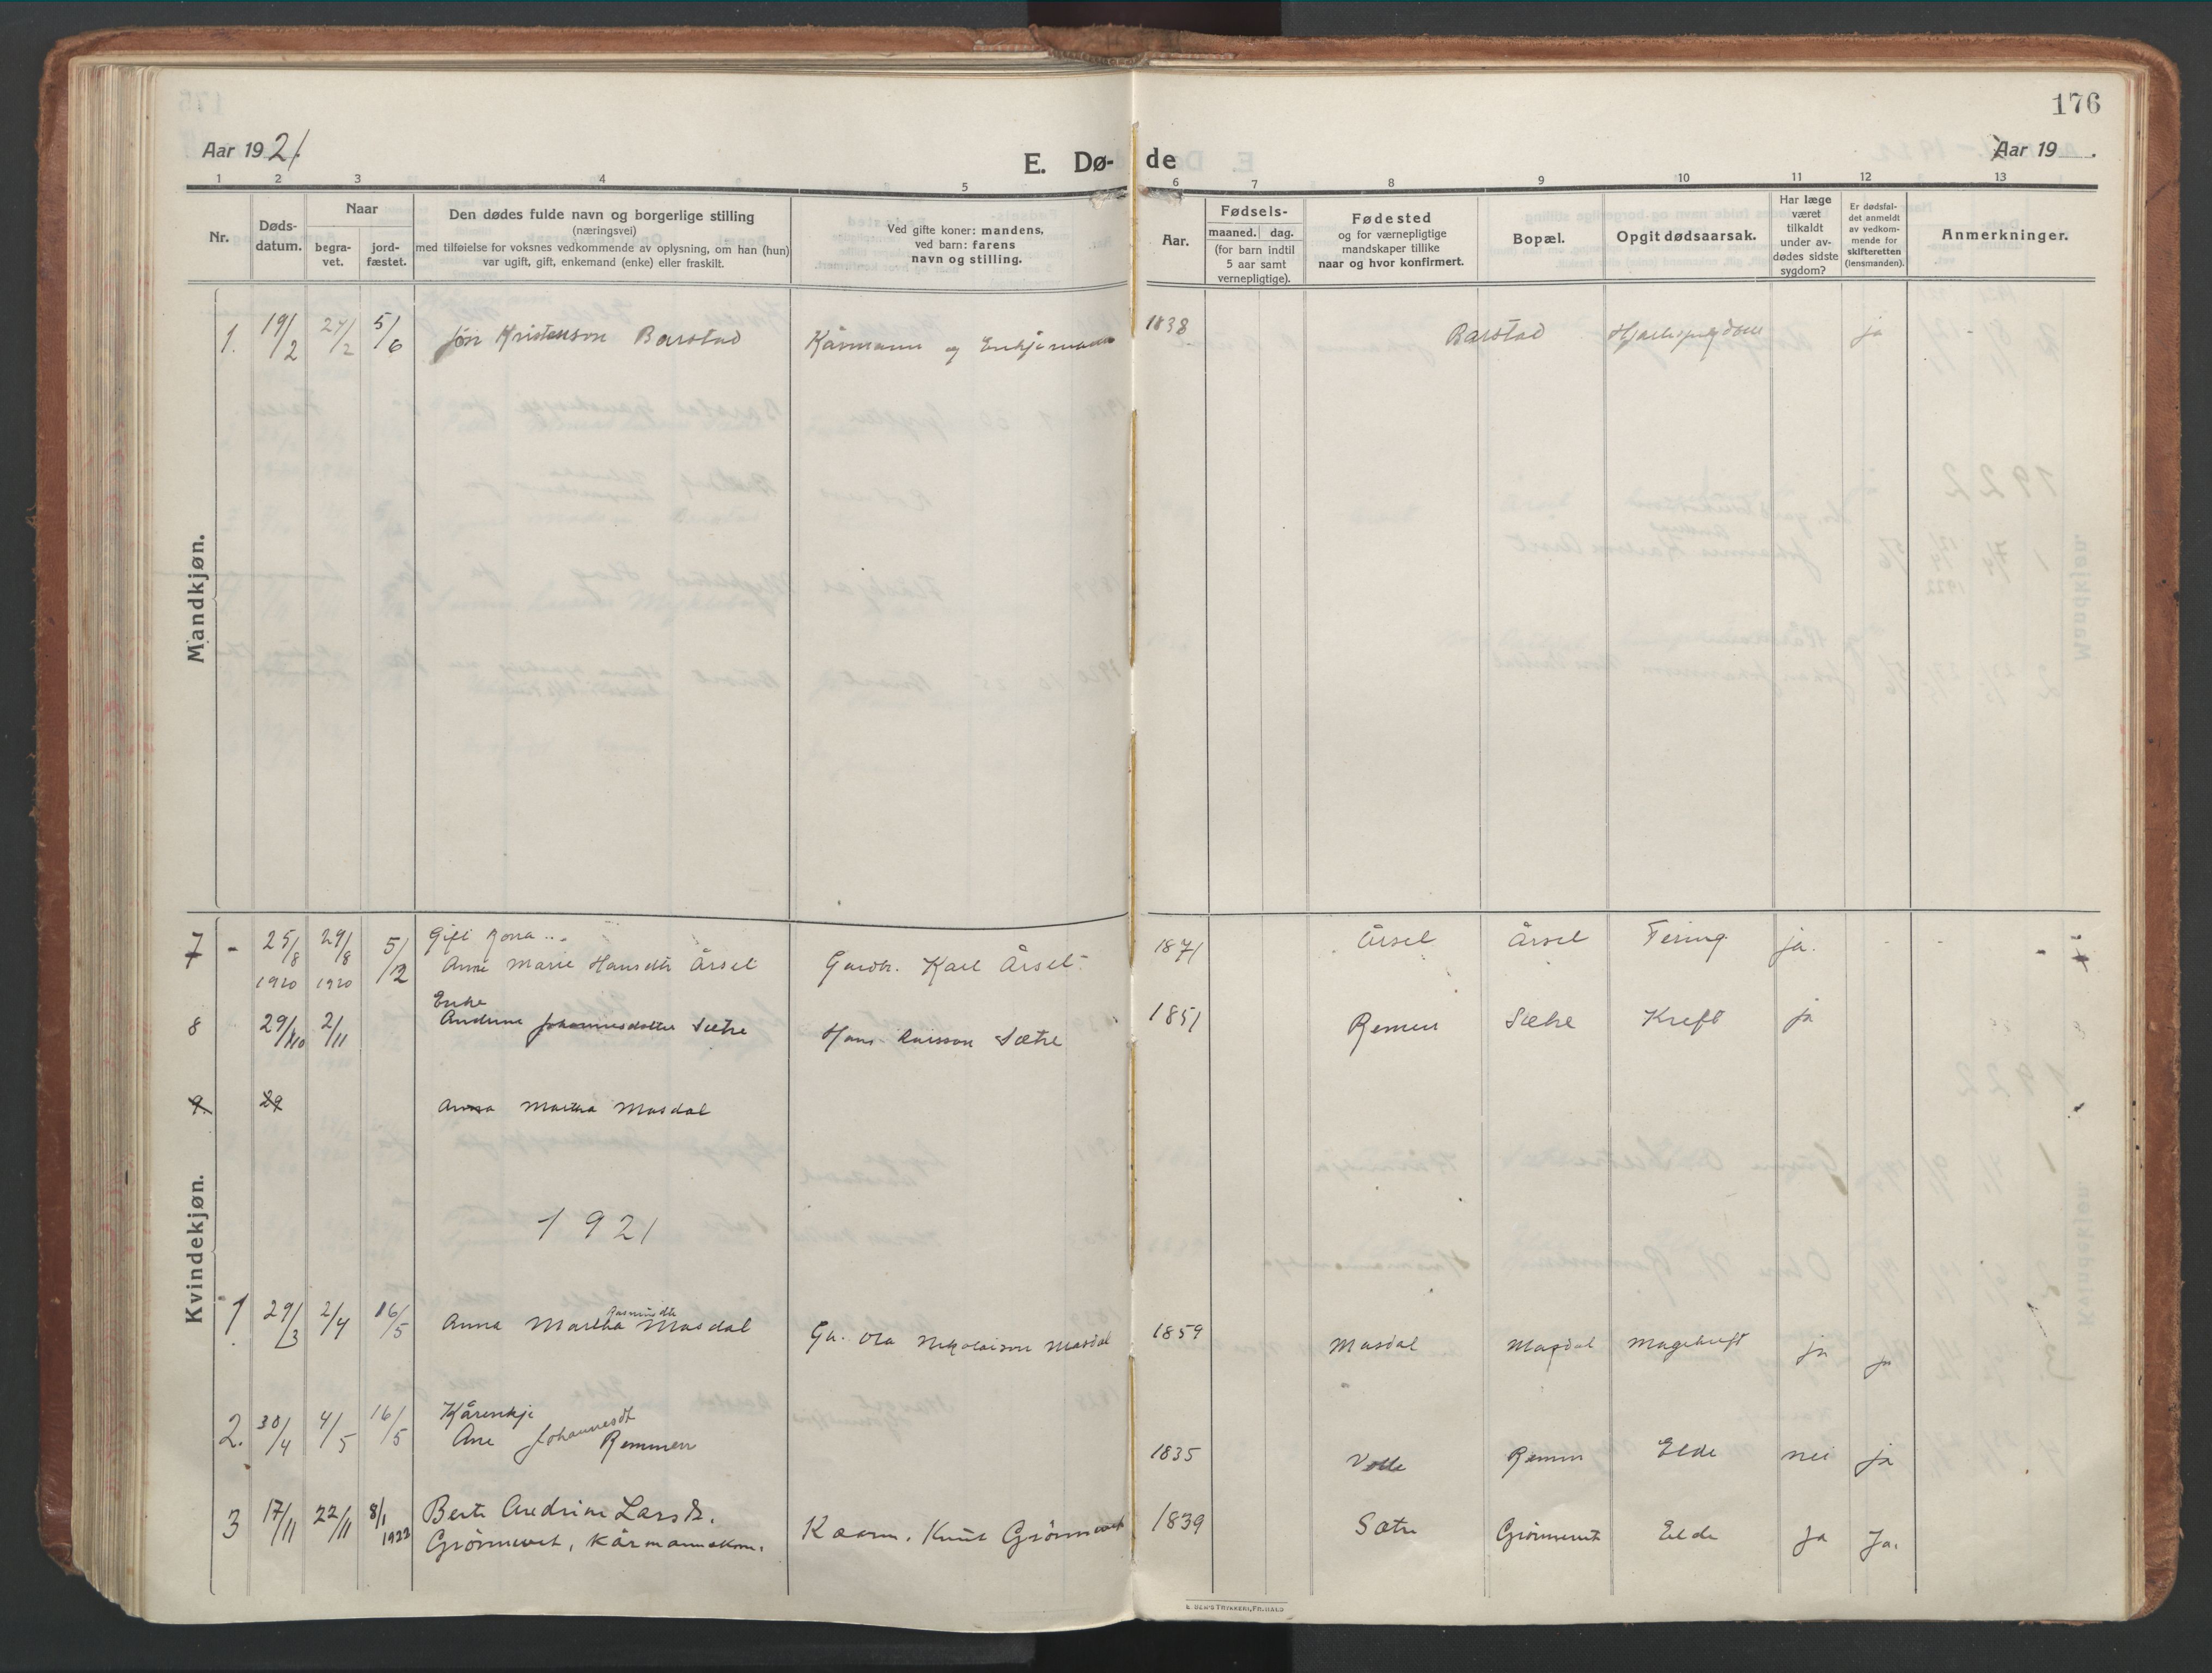 176
Aar 1921.
E. Dø-
de
Aar 19 .
1 2 3 4 5 6 7 8 9 10 11 12 13
Nr.
Døds-
datum.
Naar
begra-
vet.
jord-
fæstet.
Den dødes fulde navn og borgerlige stilling
(næringsvei)
med tilføielse for voksnes vedkommende av oplysning, om han (hun)
var ugift, gift, enkemand (enke) eller fraskilt.
Ved gifte koner: mandens,
ved barn: farens
navn og stilling.
Aar.
Fødsels-
maaned. dag.
(for barn indtil
5 aar samt
vernepligtige).
Fødested
og for værnepligtige
mandskaper tillike
naar og hvor konfirmert.
Bopæl.
Opgit dødsaarsak.
Har læge
været
tilkaldt
under av-
dødes sidste
sygdom?
Er dødsfal-
det anmeldt
av vedkom-
mende for
skifteretten
(lensmanden).
Anmerkninger.
Mandkjøn.
1. 19/2 24/2 5/6 Jon Kristenson Barstad Kårmann og Enkjemann 1838 Barstad ja -
Kvindekjøn.
7 - 25/8 29/8 5/12 Gift kona
1920 1920 Ane Marie Hansdtr Årset Gardbr. Karl Årset. 1871 Årset Årset Tering ja.
Enke
8 29/10 2/11 Andrine Johannesdotter Sætre Hans Larsson Sætre 1851 Remen Sætre Kreft ja
9. 29 Anna Martha Masdal
1921
1 29/3 2/4 16/5 Anna Martha Rasmusdtr Masdal Ga. Ola Nikolaison Masdal 1859 Masdal Masdal Magekreft ja ja
2. 30/4 4/5 16/5 Kårenkje
Ane Johannesdt Remmen 1835 Velle Remen Elde nei ja
3 17/11 22/11 8/1 1922 Berte Andrine Larsdr.
Grönnevet, Kårmannskone. Kaarm. Knut Grönnevet 1839 Sætre Grönnevet Elde Ja Ja.
E. SEM'S TRYKKERI, FR.HALD